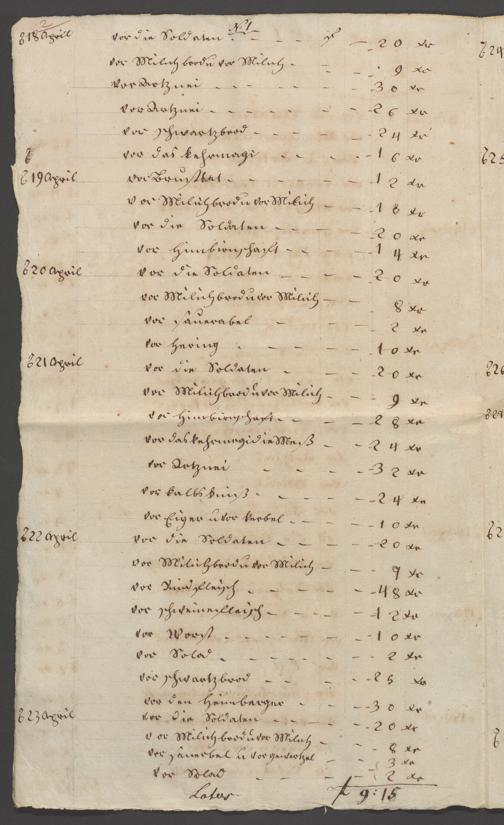 2
N 1
d 18 April vor die Soldaten - - - f - 20 xr
vor Milichbrod u vor Milich - 9 xr
vor Artznei - - - - 30 xr
vor Artznei - - - - - 26 xr
vor schwartzbrod - - - - 24 xr
d vor das kehrmagi - - - 16 xr
d 19 April vor - - - 12 xr
vor Milichbrod u vor Milich - 18 xr
vor die Soldaten - - - 20 xr
vor Himbirnschafft - - 14 xr
d 20 April vor die Soldaten - - - - 20 xr
vor Milichbrod u vor Milich - 8 xr
vor sauerabel - 2 xr
vor Hering - - - - 10 xr
d 21 April vor die Soldaten - - - 20 xr
vor Milichbrod u vor Milich - 9 xr
vor Himbirnschafft - - - 28 xr
vor das kehrmagi die - - 24 xr
vor Artznei - - - - 32 xr
vor kalbs - - - - 24 xr
vor Eiger u vor kerbel - - - 10 xr
d 22 April vor die Soldaten - - - - 20 xr
vor Milichbrod u vor Milich - 9 xr
vor Rindfleisch - - - - 48 xr
vor schweinenfleisch - - - 12 xr
vor Worst - - - - - 10 xr
vor Salad - - - - - 2 xr
vor schwartzbrod - - - - 25 xr
vor den Heimberger - - - 30 xr
d 23 April vor die Soldaten - - - - 20 xr
vor Milichbrod u vor Milich - 8 xr
vor u vor - 3 xr
vor Salad - - - 2 xr
Latus - f 9:15